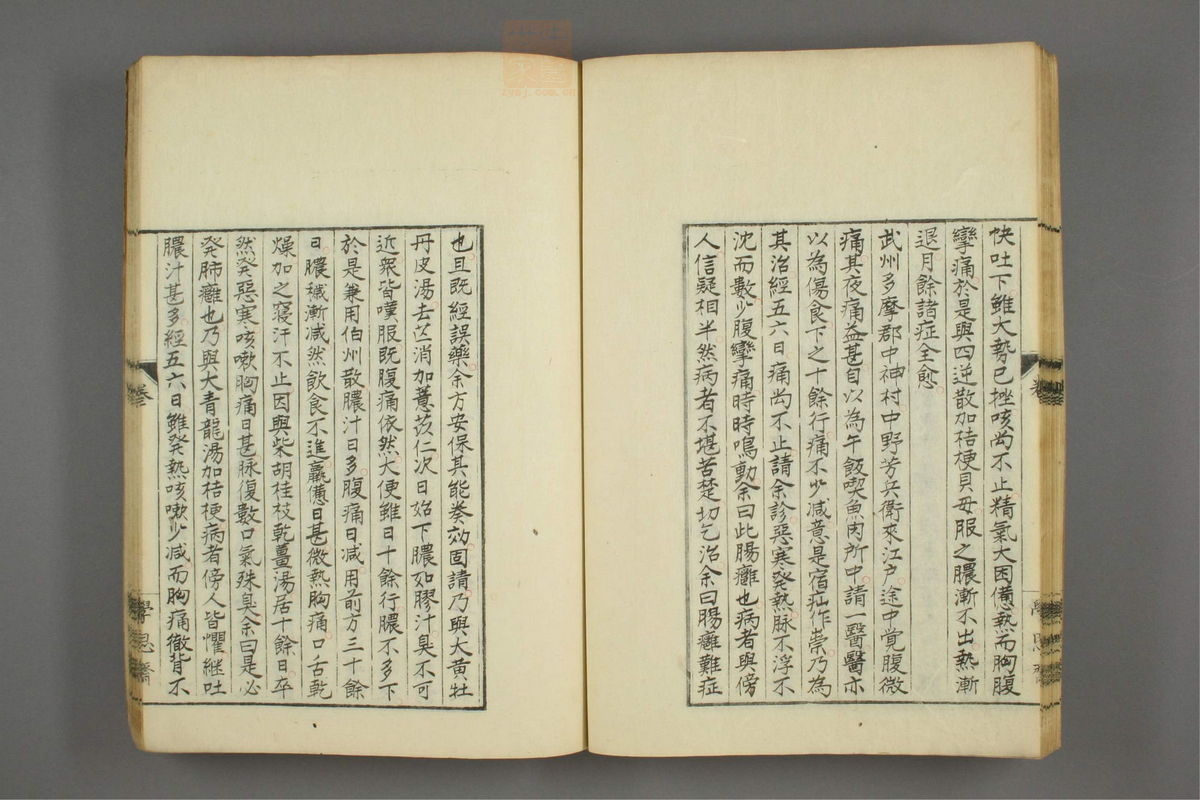 快吐下雖大勢已挫咳尚不止精氣大困憊熱而胸腹
攣痛於是與四逆散加桔梗貝母服之膿漸不出熱漸
退月餘諸症全愈
武州多摩郡中神村中野芳兵衛來江戶途中覚腹微
痛其夜痛益甚自以為午飯喫魚肉所中請一醫醫亦
以為傷食下之十餘行痛不少減意是宿疝作祟乃為
其治經五六日痛尚不止請余診惡寒發熱脉不浮不
沈而數少腹攣痛時時鳴動余曰此腸癰也病者與傍
人信疑相半然病者不堪苦楚切乞治余曰腸癰難症
也且既經誤藥余方安保其能奏効固請乃與大黄牡
丹皮湯去芒消加薏苡仁次日始下膿如膠汁臭不可
近衆皆嘆服既腹痛依然大便雖日十餘行膿不多下
於是兼用伯州散膿汁日多腹痛日減用前方三十餘
日膿穢漸減然飲食不進羸憊日甚微熱胸痛口舌乾
燥加之寢汗不止因與柴胡桂枝乾薑湯居十餘日卒
然發惡寒咳嗽胸痛日甚脉復數口氣殊臭余曰是必
發肺癰也乃與大青龍湯加桔梗病者傍人皆懼継吐
膿汁甚多經五六日雖發熱咳嗽少減而胸痛徹背不
卷
學思齋